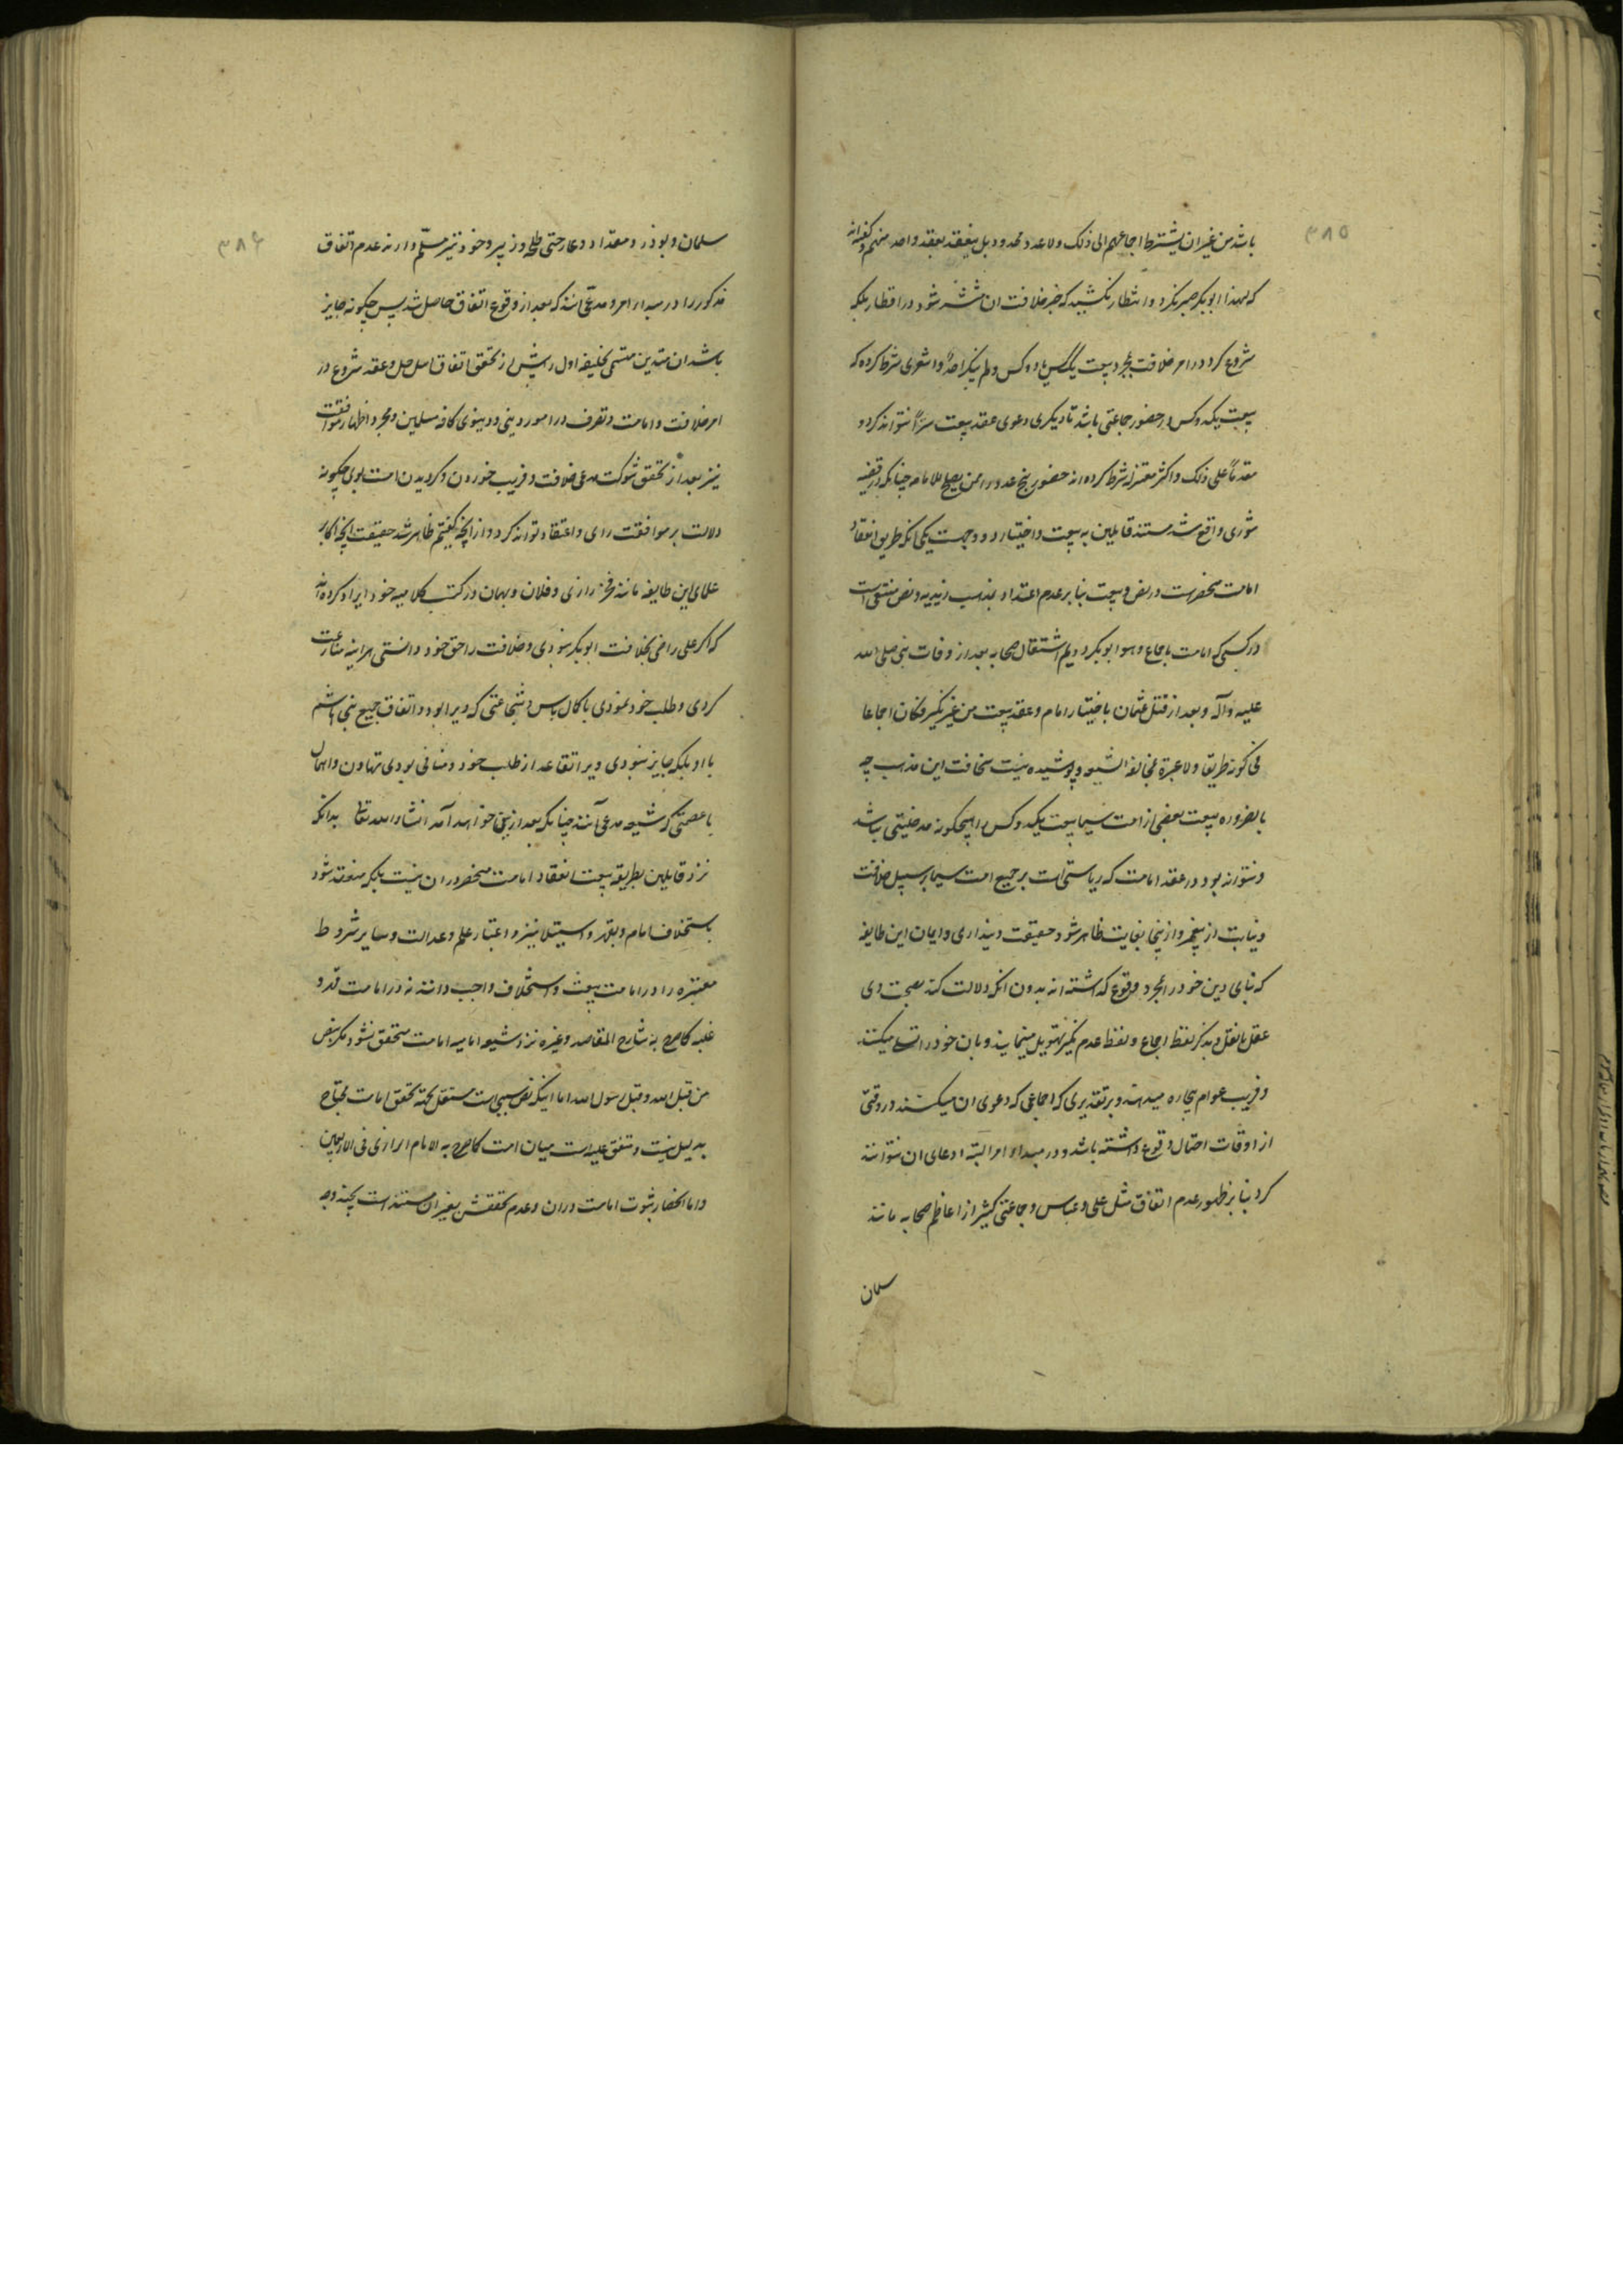 ۳۸۵
باشد من غیر ان یشترط اجماعهم الی ذلک ولا عدد محدود بل ینعقد بعقد واحد منهم و گفته‌اند
که لهذا ابوبکر صبر نکرد و انتظار نکشید که خبر خلافت ان منتشر شود در اقطار بلکه
شروع کرد در امر خلافت بمجرد بیعت یککس یا دو کس و لم ینکر احد و اشعری شرط کرده که
بیعت یکدوکس در حضور جماعتی باشد تا دیکری دعوی عقد بیعت سرّا نتواند کرد و
مقدما علی ذلک و اکثر معتزله شرط کرده‌اند حضور پنج عدد را ممن یصلح للامامه چنانکه در قضیه
شوری واقع شد مستند قایلین به بیعت و اختیار دو وجهست یکی انکه طریق انعقاد
امامت منحصرست در نص و بیعت بنا بر عدم اعتداد بمذهب زیدیه و نص منتفی است
در کسی که امامت باجماع و هو ابوبکر دویم اشتغال صحابه بعد از وفات نبی صلی الله
علیه وآله و بعد از قتل عثمان باختیار امام و عقد بیعت من غیر نکیر فکان اجماعا
فی کونه طریقا ولا عبرة بمخالفة الشیعه و پوشیده نیست سخافت این مذهب چه
بالضروره بیعت بعضی از امت سیما بیعت یکدوکس را هیچکونه مدخلیتی نباشد
و نتواند بود در عقد امامت که ریاستی است بر جمیع امت سیما بر سبیل خلافت
و نیابت از پیغمبر و از ینجا بغایت ظاهر شود حقیقت دینداری و ایمان این طایفه
که بنای دین خود را بمجرد وقوع گذاشته‌اند بدون انکه دلالت کند بصحت وی
عقل یا نقل و بذکر لفظ اجماع و لفظ عدم نکیر تهویل مینمایند و بان خود را تسلی میکنند
و فریب عوام بیچاره میدهند و بر تقدیری که اجماعی که دعوی ان میکنند در وقتی
از اوقات احتمال وقوع داشته باشد در مبداء امر البته ادعای ان نتوانند
کرد بنا بر ظهور عدم اتفاق مثل علی و عباس و جماعتی کثیر از اعاظم صحابه مانند
سلمان
۳۸۶
سلمان و بوذر و مقداد و عمار حتی طلحه و زبیر و خود نیز مسلّم دارند عدم اتفاق
مذکور را در مبداء امر و مدعی‌اند که بعد از وقوع اتفاق حاصل شد پس چکونه جایز
باشد ان متدین متسمی بخلیفه اول را پیش از تحقق اتفاق اهل حل و عقد شروع در
امر خلافت و امامت و تصرف در امور دینی و دنیوی کافه مسلمین و مجرد اظهار موافقت
نیز بعد از تحقق شوکت مدعی خلافت و فریب خوردن و کرویدن امت بوی چکونه
دلالت بر موافقت رای و اعتقاد تواند کرد و از انچه کفتیم ظاهر شد حقیقت انچه اکابر
علمای این طایفه مانند فخر رازی و فلان و بهمان در کتب کلامیه خود ایراد کرده‌اند
که اکر علی راضی بخلافت ابوبکر نبودی و خلافت را حق خود دانستی هر اینه منازعت
کردی و طلب خود نمودی با کمال باس و شجاعتی که ویرا بود و اتفاق جمیع بنی هاشم
با او بلکه جایز نبودی ویرا تقاعد از طلب خود و منافی بودی تهاون و اهمال
با عصمتی که شیعه مدعی آنند چنانکه بعد از ینجا خواهد آمد انشاء الله تعالی بدانکه
نزد قایلین بطریقه بیعت انعقاد امامت منحصر در ان نیست بلکه منعقد شود
باستخلاف امام و بقهر و استیلا نیز و اعتبار علم و عدالت و سایر شروط
معتبره را در امامت بیعت و استخلاف واجب دانند نه در امامت قهر و
غلبه کما صرح به شارح المقاصد و غیره نزد شیعه امامیه امامت متحقق نشود مکر بنص
من قبل الله و قبل رسول الله اما اینکه نص سببی است مستقل بجهة تحقق امامت محتاج
بدلیل نیست و متفق علیه است میان امت کما صرح به الامام الرازی فی الاربعین
و اما انحصار ثبوت امامت در ان و عدم تحققش بغیر ان مستند است بچند وجه